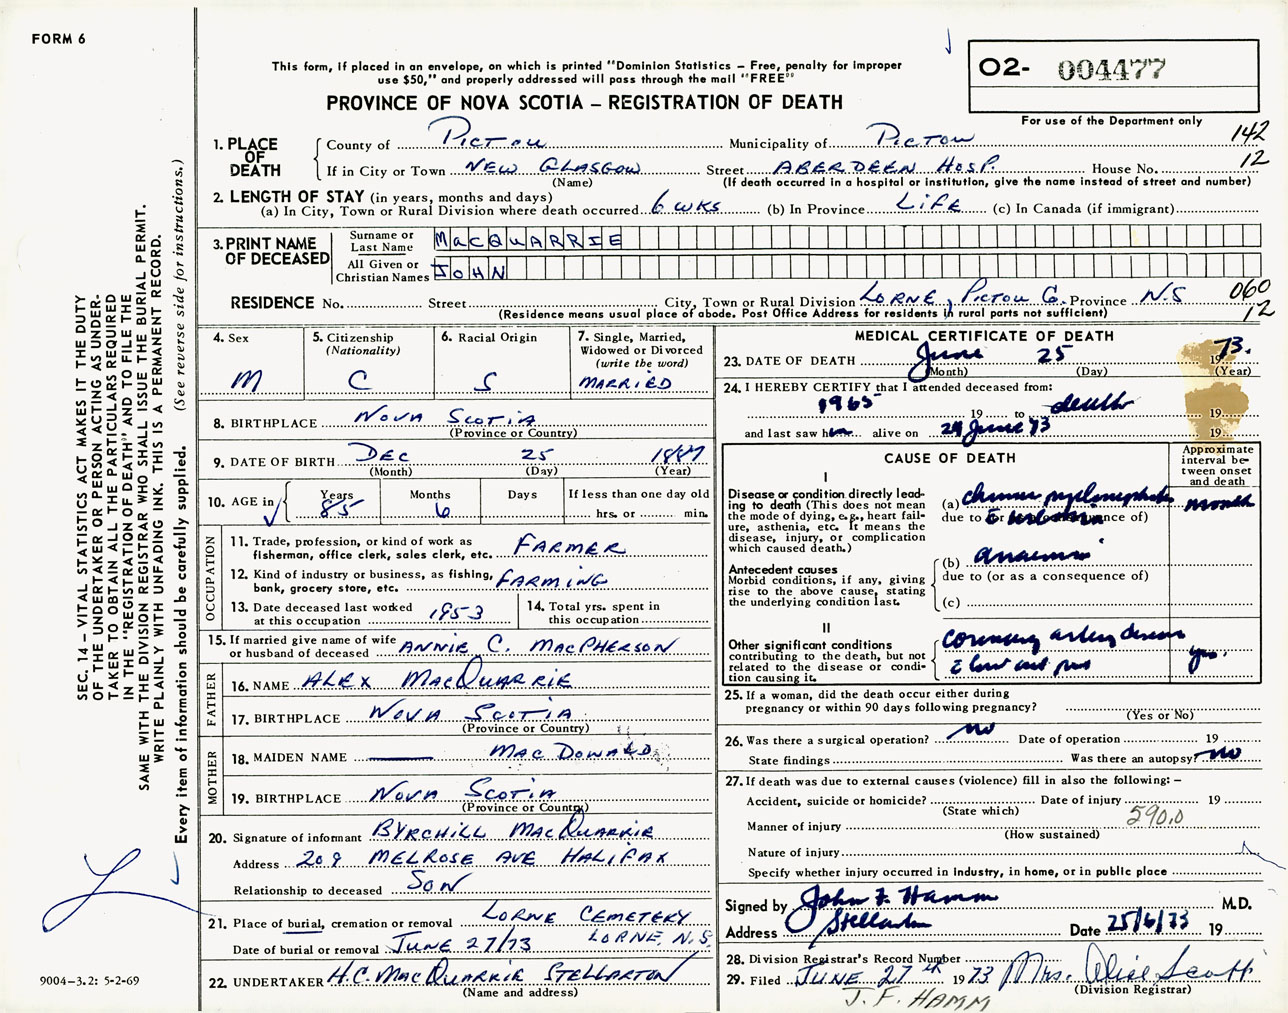 FORM 6
This form, if placed in an envelope, on which is printed "Dominion Statistics – Free, penalty for improper
use $50," and properly addressed will pass through the mail "FREE"
PROVINCE OF NOVA SCOTIA – REGISTRATION OF DEATH
O2- 004477
For use of the Department only
142
12
1. PLACE OF DEATH
County of PICTOU Municipality of PICTOU
If in City or Town NEW GLASGOW Street ABERDEEN HOSP. House No.
(Name) (If death occurred in a hospital or institution, give the name instead of street and number)
2. LENGTH OF STAY (in years, months and days)
(a) In City, Town or Rural Division where death occurred 6 WKS (b) In Province LIFE (c) In Canada (if immigrant)
3. PRINT NAME OF DECEASED
Surname or Last Name MacQUARRIE
All Given or Christian Names JOHN
RESIDENCE No. Street City, Town or Rural Division LORNE, PICTOU Co. Province N.S 060
(Residence means usual place of abode. Post Office Address for residents in rural parts not sufficient) 12
4. Sex M
5. Citizenship (Nationality) C
6. Racial Origin S
7. Single, Married, Widowed or Divorced (write the word) MARRIED
8. BIRTHPLACE NOVA SCOTIA
(Province or Country)
9. DATE OF BIRTH DEC 25 1887
(Month) (Day) (Year)
10. AGE in Years 85 Months 6 Days If less than one day old hrs. or min.
OCCUPATION
11. Trade, profession, or kind of work as fisherman, office clerk, sales clerk, etc. FARMER
12. Kind of industry or business, as fishing, bank, grocery store, etc. FARMING
13. Date deceased last worked at this occupation 1953
14. Total yrs. spent in this occupation
15. If married give name of wife or husband of deceased ANNIE C. MACPHERSON
FATHER
16. NAME ALEX MACQUARRIE
17. BIRTHPLACE NOVA SCOTIA
(Province or Country)
MOTHER
18. MAIDEN NAME MACDONALD
19. BIRTHPLACE NOVA SCOTIA
(Province or Country)
20. Signature of informant BYRCHILL MACQUARRIE
Address 209 MELROSE AVE HALIFAX
Relationship to deceased SON
21. Place of burial, cremation or removal LORNE CEMETERY
Date of burial or removal JUNE 27/73 LORNE, N.S.
22. UNDERTAKER H.C. MACQUARRIE STELLARTON
(Name and address)
MEDICAL CERTIFICATE OF DEATH
23. DATE OF DEATH June 25 1973.
(Month) (Day) (Year)
24. I HEREBY CERTIFY that I attended deceased from:
1965 19 to death 19
and last saw him alive on 24 June 73 19
CAUSE OF DEATH
Approximate interval between onset and death
I
Disease or condition directly leading to death (This does not mean the mode of dying, e.g., heart failure, asthenia, etc. It means the disease, injury, or complication which caused death.)
(a) chronic pyelonephritis
due to (or as a consequence of)
Antecedent causes
Morbid conditions, if any, giving rise to the above cause, stating the underlying condition last.
(b) anaemia
due to (or as a consequence of)
(c)
II
Other significant conditions contributing to the death, but not related to the disease or condition causing it.
coronary artery disease yrs.
25. If a woman, did the death occur either during pregnancy or within 90 days following pregnancy?
(Yes or No)
26. Was there a surgical operation? no Date of operation 19
State findings Was there an autopsy? no
27. If death was due to external causes (violence) fill in also the following: –
Accident, suicide or homicide? Date of injury 19
(State which)
Manner of injury 590.0
(How sustained)
Nature of injury
Specify whether injury occurred in industry, in home, or in public place
Signed by John F. Hamm M.D.
Address Stellarton Date 25/6/73 19
28. Division Registrar's Record Number
29. Filed JUNE 27th 1973 Mrs. Alice Scott
(Division Registrar)
J. F. HAMM
SEC. 14 – VITAL STATISTICS ACT MAKES IT THE DUTY
OF THE UNDERTAKER OR PERSON ACTING AS UNDER-
TAKER TO OBTAIN ALL THE PARTICULARS REQUIRED
IN THE "REGISTRATION OF DEATH" AND TO FILE THE
SAME WITH THE DIVISION REGISTRAR WHO SHALL ISSUE THE BURIAL PERMIT.
WRITE PLAINLY WITH UNFADING INK. THIS IS A PERMANENT RECORD.
Every item of information should be carefully supplied. (See reverse side for instructions.)
9004-3.2: 5-2-69